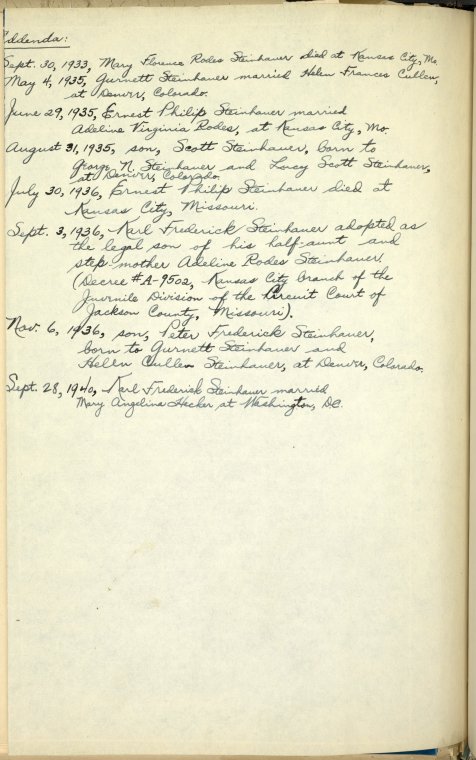 Addenda:
Sept. 30, 1933, Mary Florence Rodes Steinhauer died at Kansas City, Mo.
May 4, 1935, Gurnett Steinhauer married Helen Frances Cullen,
at Denver, Colorado.
June 29, 1935, Ernest Philip Steinhauer married
Adeline Virginia Rodes, at Kansas City, Mo.
August 31, 1935, son, Scott Steinhauer, born to
George N. Steinhauer and Lucy Scott Steinhauer,
at Denver, Colorado.
July 30, 1936, Ernest Philip Steinhauer died at
Kansas City, Missouri.
Sept. 3, 1936, Karl Frederick Steinhauer adopted as
the legal son of his half-aunt and
step-mother Adeline Rodes Steinhauer
(Decree #A-9502, Kansas City branch of the
Juvenile Division of the Circuit Court of
Jackson County, Missouri).
Nov. 6, 1936, son, Peter Frederick Steinhauer,
born to Gurnett Steinhauer and
Helen Cullen Steinhauer, at Denver, Colorado.
Sept. 28, 1940, Karl Frederick Steinhauer married
Mary Angelina Hecker at Washington, DC.